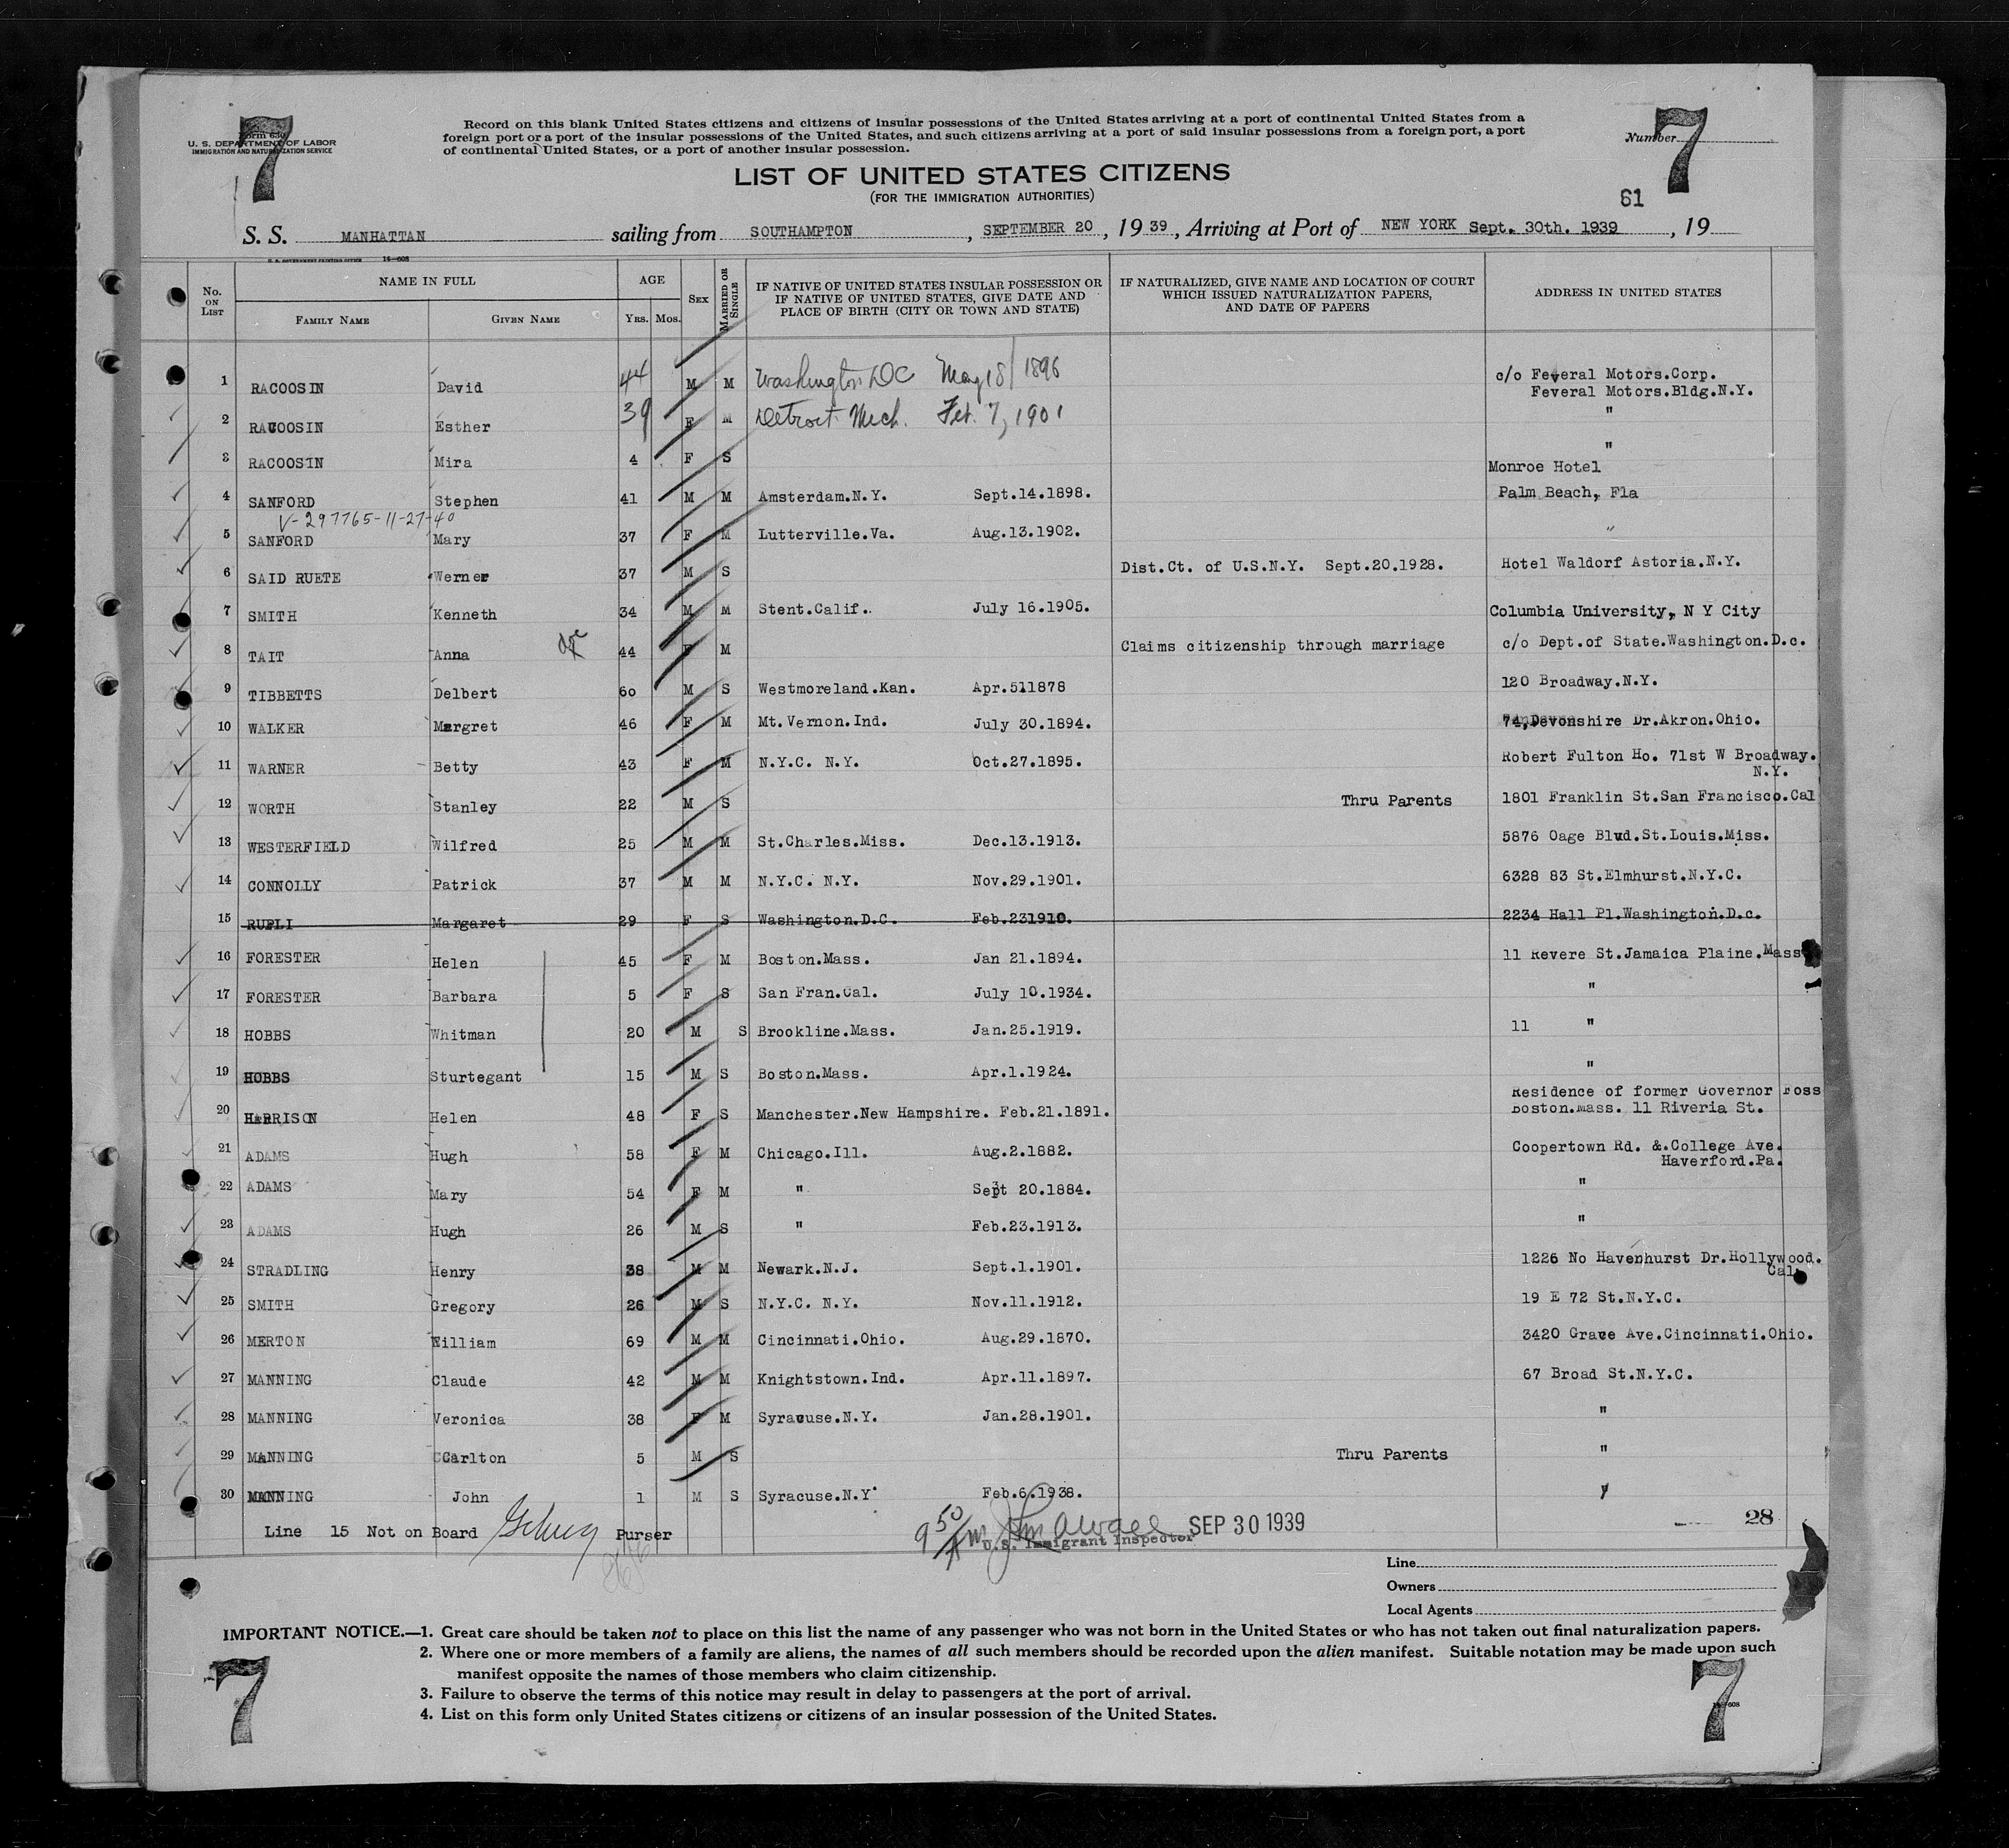 7
Form 630
U. S. DEPARTMENT OF LABOR
IMMIGRATION AND NATURALIZATION SERVICE
Record on this blank United States citizens and citizens of insular possessions of the United States arriving at a port of continental United States from a
foreign port or a port of the insular possessions of the United States, and such citizens arriving at a port of said insular possessions from a foreign port, a port
of continental United States, or a port of another insular possession.
Number 7
LIST OF UNITED STATES CITIZENS
(FOR THE IMMIGRATION AUTHORITIES)
61
S. S. MANHATTAN sailing from SOUTHAMPTON, SEPTEMBER 20, 1939, Arriving at Port of NEW YORK Sept. 30th. 1939, 19
U. S. GOVERNMENT PRINTING OFFICE 14-608
No. ON LIST NAME IN FULL FAMILY NAME GIVEN NAME AGE YRS. MOS. SEX MARRIED OR SINGLE IF NATIVE OF UNITED STATES INSULAR POSSESSION OR IF NATIVE OF UNITED STATES, GIVE DATE AND PLACE OF BIRTH (CITY OR TOWN AND STATE) IF NATURALIZED, GIVE NAME AND LOCATION OF COURT WHICH ISSUED NATURALIZATION PAPERS, AND DATE OF PAPERS ADDRESS IN UNITED STATES
1 RACOOSIN David 44 M M Washington DC May 18/1896 c/o Feveral Motors.Corp.
Feveral Motors.Bldg.N.Y.
2 RACOOSIN Esther 39 F M Detroit Mich. Feb. 7, 1901 "
3 RACOOSIN Mira 4 F S "
Monroe Hotel
4 SANFORD Stephen 41 M M Amsterdam.N.Y. Sept.14.1898. Palm Beach, Fla
V-297765-11-27-40
5 SANFORD Mary 37 F M Lutterville.Va. Aug.13.1902. "
6 SAID RUETE Werner 37 M S Dist.Ct. of U.S.N.Y. Sept.20.1928. Hotel Waldorf Astoria.N.Y.
7 SMITH Kenneth 34 M M Stent.Calif. July 16.1905. Columbia University, N Y City
8 TAIT Anna 44 F M Claims citizenship through marriage c/o Dept.of State.Washington.D.c.
9 TIBBETTS Delbert 60 M S Westmoreland.Kan. Apr.511878 120 Broadway.N.Y.
10 WALKER Margret 46 F M Mt.Vernon.Ind. July 30.1894. 74,Devonshire Dr.Akron.Ohio.
11 WARNER Betty 43 F M N.Y.C. N.Y. Oct.27.1895. Robert Fulton Ho. 71st W Broadway.
N.Y.
12 WORTH Stanley 22 M S Thru Parents 1801 Franklin St.San Francisco.Cal
13 WESTERFIELD Wilfred 25 M M St.Charles.Miss. Dec.13.1913. 5876 Oage Blvd.St.Louis.Miss.
14 CONNOLLY Patrick 37 M M N.Y.C. N.Y. Nov.29.1901. 6328 83 St.Elmhurst.N.Y.C.
15 RUPLI Margaret 29 F S Washington.D.C. Feb.231910. 2234 Hall Pl.Washington.D.c.
16 FORESTER Helen 45 F M Boston.Mass. Jan 21.1894. 11 Revere St.Jamaica Plaine.Mass
17 FORESTER Barbara 5 F S San Fran.Cal. July 10.1934. "
18 HOBBS Whitman 20 M S Brookline.Mass. Jan.25.1919. 11 "
19 HOBBS Sturtegant 15 M S Boston.Mass. Apr.1.1924. "
Residence of former Governor Foss
20 HARRISON Helen 48 F S Manchester.New Hampshire. Feb.21.1891. Boston.Mass. 11 Riveria St.
21 ADAMS Hugh 58 M Chicago.Ill. Aug.2.1882. Coopertown Rd. &.College Ave.
Haverford.Pa.
22 ADAMS Mary 54 F M " Sept 20.1884. "
23 ADAMS Hugh 26 M S " Feb.23.1913. "
24 STRADLING Henry 38 M M Newark.N.J. Sept.1.1901. 1226 No Havenhurst Dr.Hollywood.
Cal.
25 SMITH Gregory 26 M S N.Y.C. N.Y. Nov.11.1912. 19 E 72 St.N.Y.C.
26 MERTON William 69 M M Cincinnati.Ohio. Aug.29.1870. 3420 Grave Ave.Cincinnati.Ohio.
27 MANNING Claude 42 M M Knightstown.Ind. Apr.11.1897. 67 Broad St.N.Y.C.
28 MANNING Veronica 38 F M Syracuse.N.Y. Jan.28.1901. "
29 MANNING Carlton 5 M S Thru Parents "
30 MANNING John 1 M S Syracuse.N.Y. Feb.6.1938. "
Line 15 Not on Board Purser 9 50/AM U.S. Immigrant Inspector SEP 30 1939 28
Line
Owners
Local Agents
IMPORTANT NOTICE.—1. Great care should be taken not to place on this list the name of any passenger who was not born in the United States or who has not taken out final naturalization papers.
2. Where one or more members of a family are aliens, the names of all such members should be recorded upon the alien manifest. Suitable notation may be made upon such
manifest opposite the names of those members who claim citizenship.
3. Failure to observe the terms of this notice may result in delay to passengers at the port of arrival.
4. List on this form only United States citizens or citizens of an insular possession of the United States.
7
7
14-608